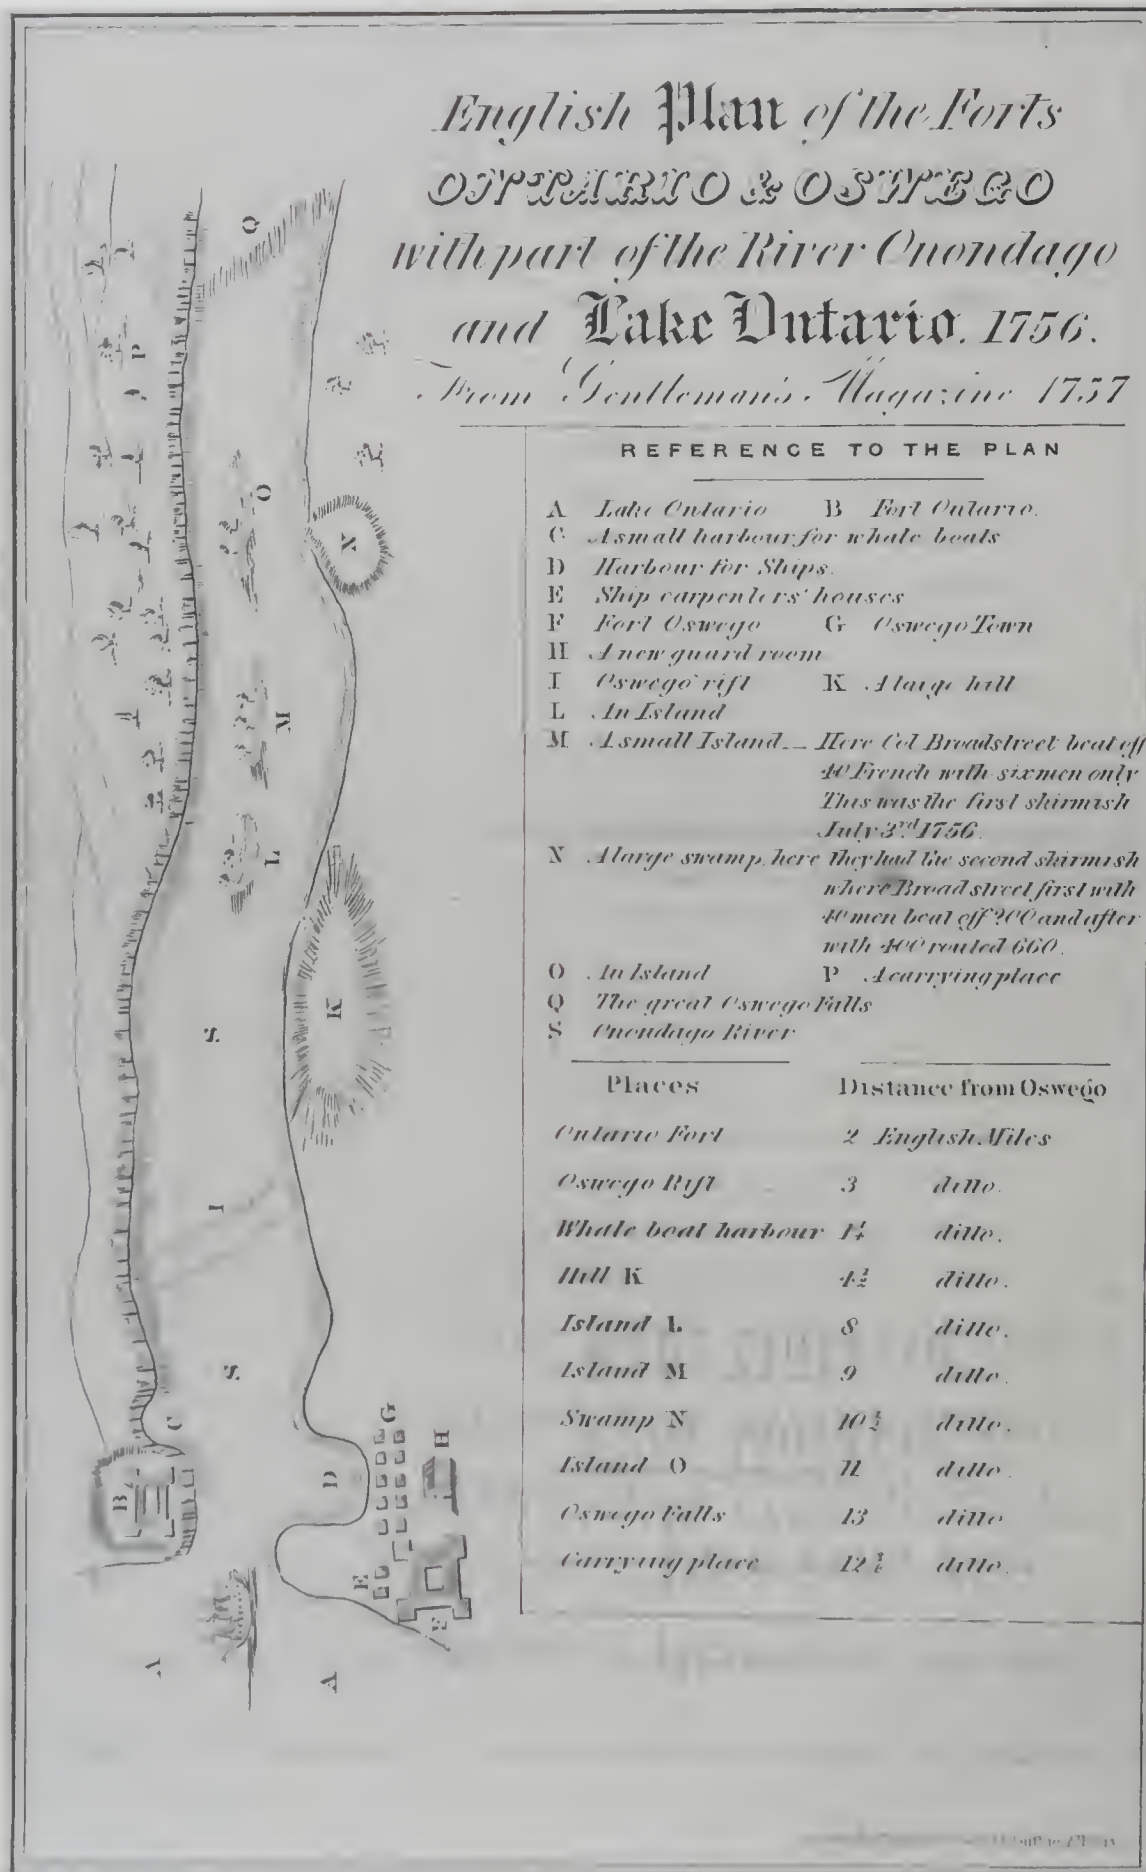 English Plan of the Forts
ONTARIO & OSWEGO
with part of the River Onondago
and Lake Ontario. 1756.
From Gentleman's Magazine 1757
REFERENCE TO THE PLAN
A Lake Ontario B Fort Ontario.
C A small harbour for whale boats
D Harbour for Ships.
E Ship carpenters' houses
F Fort Oswego G Oswego Town
H A new guard room
I Oswego rift K A large hill
L An Island
M A small Island._ Here Col Broadstreet beat off
40 French with six men only
This was the first skirmish
July 3rd 1756.
N A large swamp, here they had the second skirmish
where Broad street first with
40 men beat off 200 and after
with 400 routed 660.
O An Island P A carrying place
Q The great Oswego Falls
S Onondago River
Places Distance from Oswego
Ontario Fort 2 English Miles
Oswego Rift 3 ditto.
Whale boat harbour 1¼ ditto.
Hill K 4½ ditto.
Island L 8 ditto.
Island M 9 ditto.
Swamp N 10½ ditto.
Island O 11 ditto.
Oswego Falls 13 ditto
Carrying place 12 ditto.
Q
P
O
N
M
L
K
S
I
S
C
B
D
G
H
E
F
A
A